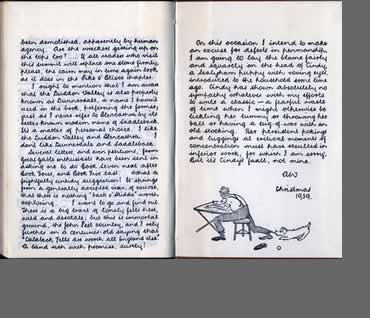 been demolished, apparently by human
agency. Are the wreckers getting up on
the tops too? ... If all readers who visit
this summit will replace one stone firmly,
please, the cairn may in time again look
as it does in the Pike o' Blisco chapter.
I ought to mention that I am aware
that the Duddon Valley is also properly
known as Dunnerdale, a name I haven't
used in the book, preferring the former;
just as I never refer to Blencathra by its
better known modern name of Saddleback.
It's a matter of personal choice. I like
the Duddon Valley and Blencathra. I
don't like Dunnerdale and Saddleback.
Several letters, and even petitions, from
great gable enthusiasts have been sent in
asking me to do Book Seven next after
Book Four, and Book Five last.
frightfully untidy suggestion! It springs
from a generally accepted view, of course,
that there is nothing "back o' Skidda" worth
exploring. I want to go and find out.
There is a big tract of lonely fells here,
wild and desolate; but this is immortal
ground, the John Peel country, and I rely
further on a centuries-old saying that
"Caldbeck Fells are worth all England else".
A land rich with promise, surely!
On this occasion I intend to make
an excuse for defects in penmanship.
I am going to lay the blame fairly
and squarely on the head of Cindy,
a Sealyham puppy with roving eyes
introduced to the household some time
ago. Cindy has shown absolutely no
sympathy whatever with my efforts
to write a classic — a fearful waste
of time when I might otherwise be
tickling her tummy or throwing her
ball or having a tug of war with an
old stocking. Her persistent pokings
and tuggings at critical moments of
concentration must have resulted in
inferior work, for which I am sorry.
But it's Cindy's fault, not mine.
AW
Christmas
1959.